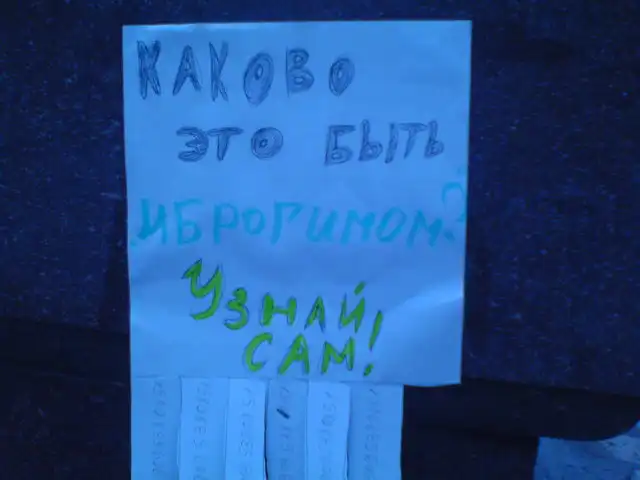 КАКОВО
ЭТО БЫТЬ
ИБРОГИМОМ?
УЗНАЙ
САМ!